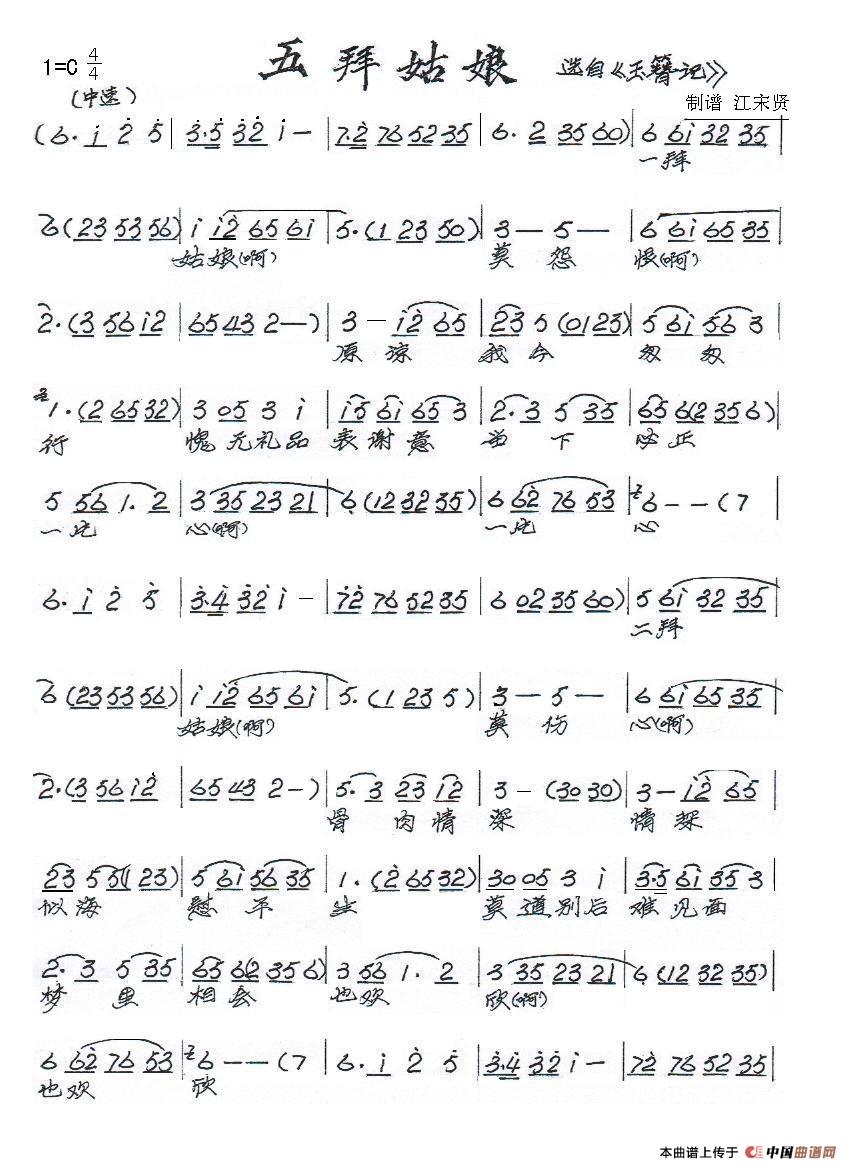 五拜姑娘 选自《玉簪记》
1=C 4/4
(中速)
制谱 江宋贤
(6. i 2 5 | 3.5 32 i — | 7.2 76 52 35 | 6. 2 35 60) | 6 6i 32 35 |
一拜
6 (23 53 56) | i i2 65 6i | 5. (1 23 50) | 3 — 5 — | 6 6i 65 35 |
姑娘(啊) 莫 怨 恨(啊)
2. (3 56 i2 | 65 43 2 —) | 3 — i2 65 | 23 5 (01 23) | 5 6i 56 3 |
原谅 我今 匆匆
1. (2 65 32) | 3 05 3 i | i5 6i 65 3 | 2. 3 5 35 | 65 6(2 35 6) |
行 愧无礼品 表谢意 当下 必正
5 56 1. 2 | 3 35 23 21 | 6 (12 32 35) | 6 62 76 53 | 6 — — (7
一片 心(啊) 一片 心
6. i 2 5 | 3.4 32 i — | 72 76 52 35 | 6 02 35 60) | 5 6i 32 35 |
二拜
6 (23 53 56) | i i2 65 6i | 5. (1 23 5) | 3 — 5 — | 6 6i 65 35 |
姑娘(啊) 莫 伤 心(啊)
2. (3 56 i2 | 65 43 2 —) | 5. 3 23 i2 | 3 — (30 30) | 3 — i2 65 |
骨 肉情 深 情深
23 5 5(1 23) | 5 6i 56 35 | 1. (2 65 32) | 30 05 3 i | 3.5 6i 35 3 |
似海 慰平 生 莫道别后 难见面
2. 3 5 35 | 65 6(2 35 6) | 3 56 1. 2 | 3 35 23 21 | 6 (12 32 35) |
梦里 相会 也欢 欣(啊)
6 62 76 53 | 6 — — (7 | 6. i 2 5 | 3.4 32 i — | 72 76 52 35 |
也欢 欣
本曲谱上传于 中国曲谱网